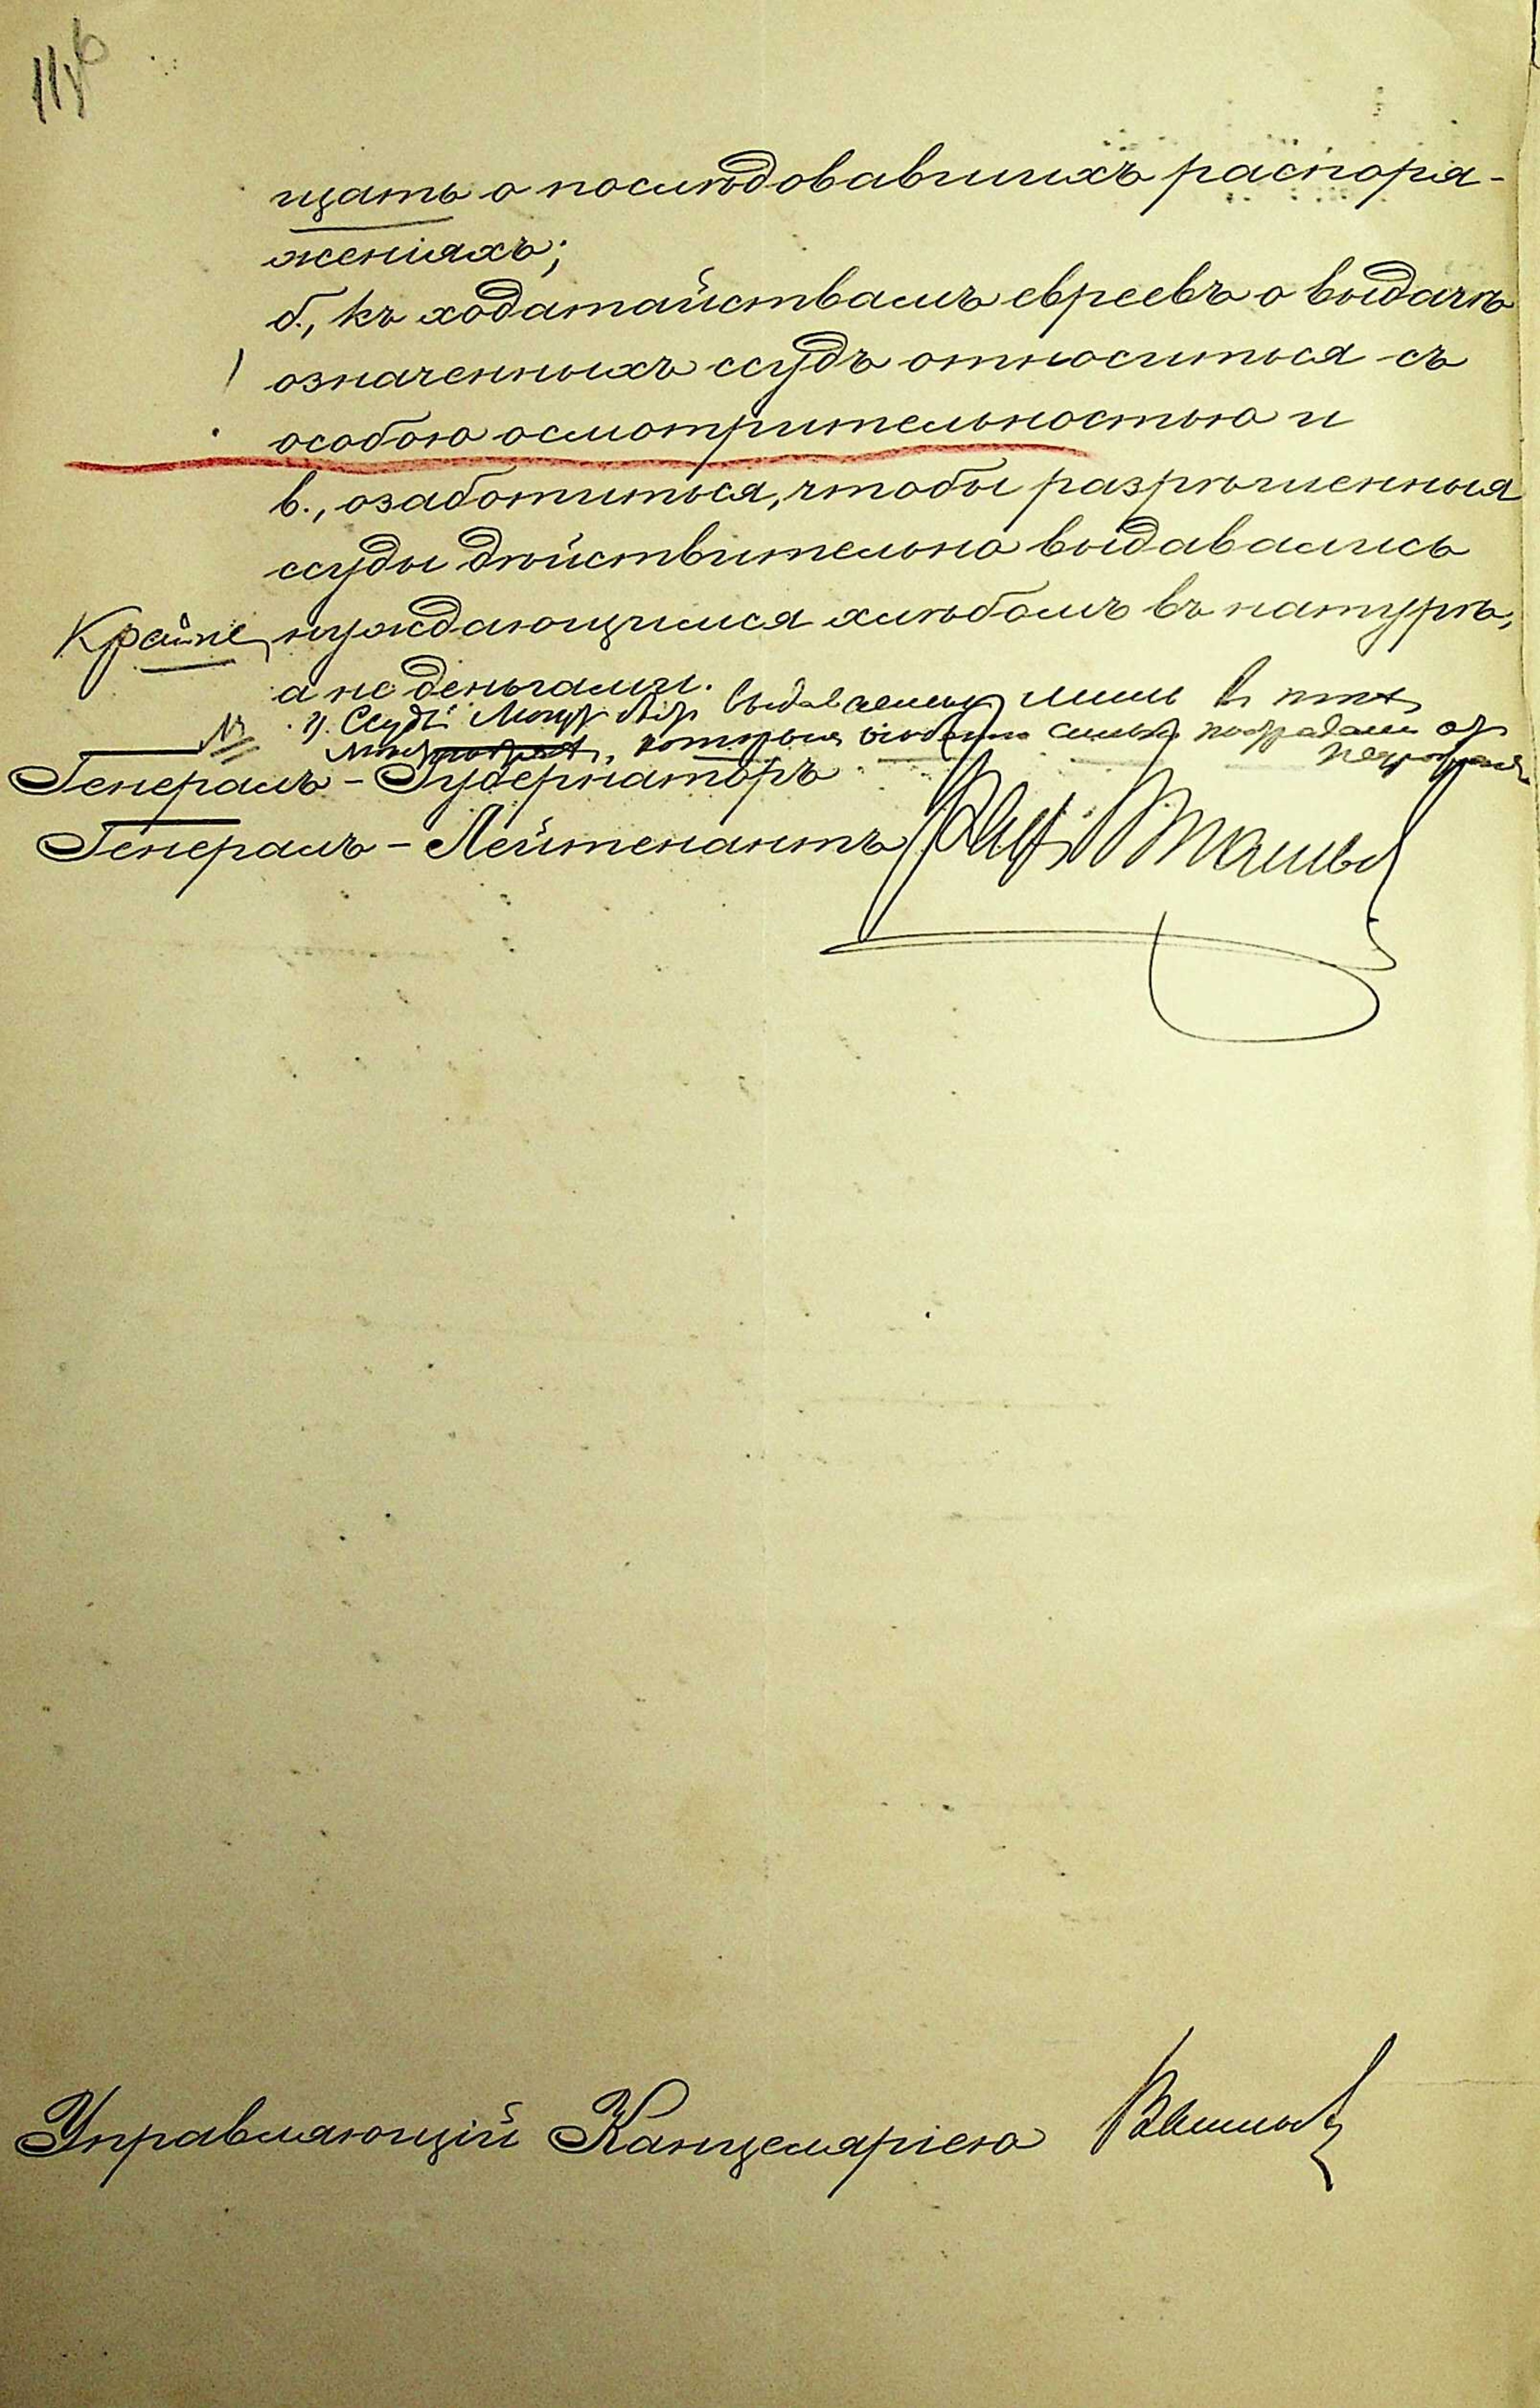 щать о послѣдовавшихъ распоря-
женіяхъ;
б., къ ходатайствамъ евреевъ о выдачѣ
означенныхъ ссудъ относиться съ
особою осмотрительностью и
в., озаботиться, чтобы разрѣшенныя
ссуды дѣйствительно выдавались
Крайне нуждающимся хлѣбомъ въ натурѣ,
а не деньгами.
г). Ссуды могутъ быть выдаваемы лишь въ тѣхъ
которыя особенно сильно пострадали отъ
неурожая
Генералъ-Губернаторъ
Генералъ-Лейтенантъ
Управляющій Канцеляріею